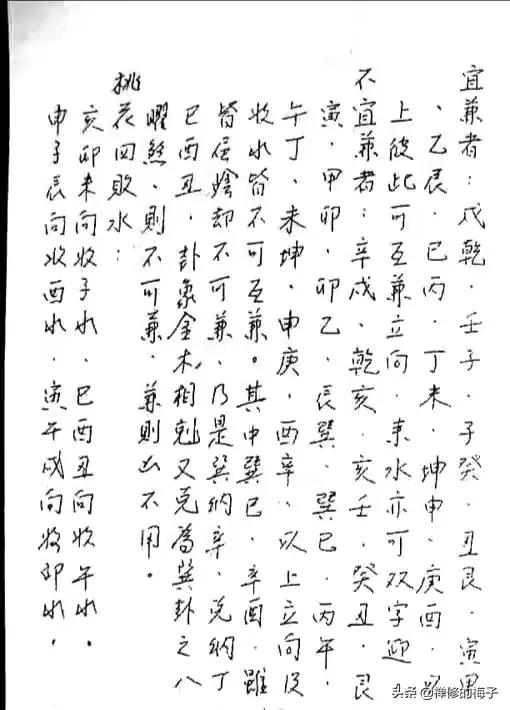 宜兼者：戌乾．壬子．子癸．丑艮．寅甲
、乙辰．巳丙．丁未．坤申．庚酉．以
上彼此可互兼立向．来水亦可双字迎
不宜兼者：辛戌．乾亥．亥壬．癸丑．艮
寅．甲卯．卯乙．辰巽．巽巳．丙午．
午丁．未坤．申庚．酉辛．以上立向及
收水皆不可互兼。其中巽巳．辛酉．雖
皆屬陰却不可兼．乃是巽納辛．兑納丁
巳酉丑．卦象金木相剋又克為巽卦之八
曜煞．則不可兼．兼則凶不用。
桃花四敗水：
亥卯未向收子水．巳酉丑向收午水。
申子辰向收酉水．寅午戌向收卯水．
头条@禅修的梅子